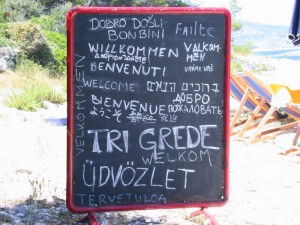 DOBRO DOŠLI
FAILTE
BONBINI
WILLKOMMEN
VALKOM-
MEN
BENVENUTI
WELCOME
ברוכים הבאים
ДОБРО
BIENVENUE
ПОЖАЛОВАТЬ
TRI GREDE
WELKOM
ÜDVÖZLET
TERVETULOA
VELKOMMEN